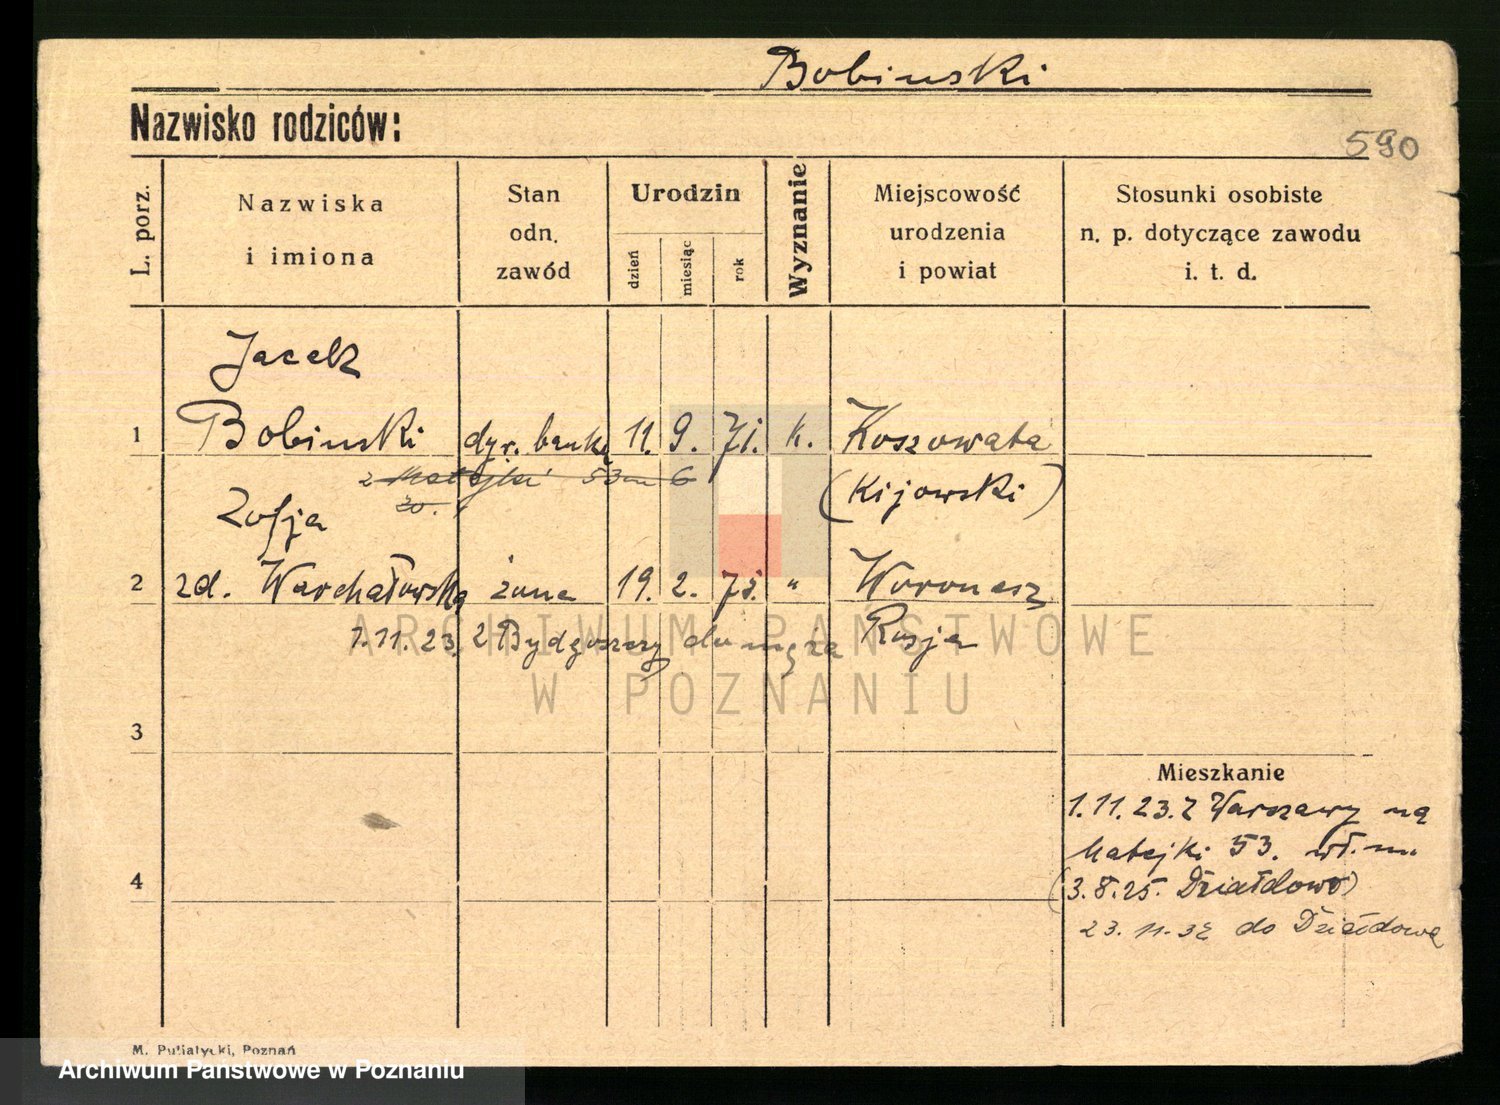 Bobinski
Nazwisko rodziców:
590
L. porz.
Nazwiska
i imiona
Stan
odn.
zawód
Urodzin
dzień
miesiąc
rok
Wyznanie
Miejscowość
urodzenia
i powiat
Stosunki osobiste
n. p. dotyczące zawodu
i. t. d.
Jacek
1 Bobinski dyr. banku 11. 9. 71. k. Koszowata
z Matejki 53 m 6
(Kijowski)
Zofja
2 zd. Warchałowska żona 19. 2. " Woronesz
1.11.23. z Bydgoszczy do męża Rosja
ARCHIWUM PAŃSTWOWE
W POZNANIU
3
Mieszkanie
1.11.23. z Warszawy na
Matejki 53. wł. m.
(3.8.25. Działdowo)
4
23. 11. 32 do Działdowa
M. Putiatycki, Poznań
Archiwum Państwowe w Poznaniu